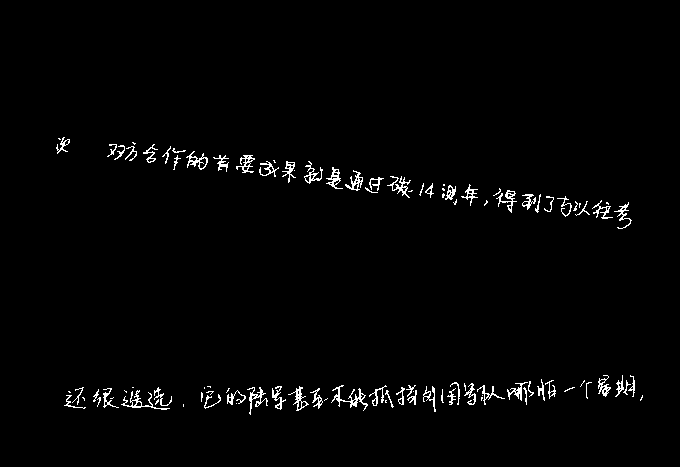 双方合作的首要成果就是通过碳14测年,得到了与以往考
还很遥远.它的陆军甚至不能抵挡外国军队哪怕一个星期,